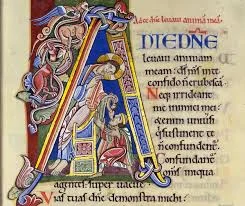 Ad te dne leuaui anima mea
A DTEDNE
leuaui animam
meam: ds ms inte
confido n erubesca
Neq; irrideant
me inimici mei:
etenim uniusi
q sustinent te n
confundent.
Confundant
oms iniqua
agentes super uacue.
Vias tuas dne demonstra michi: